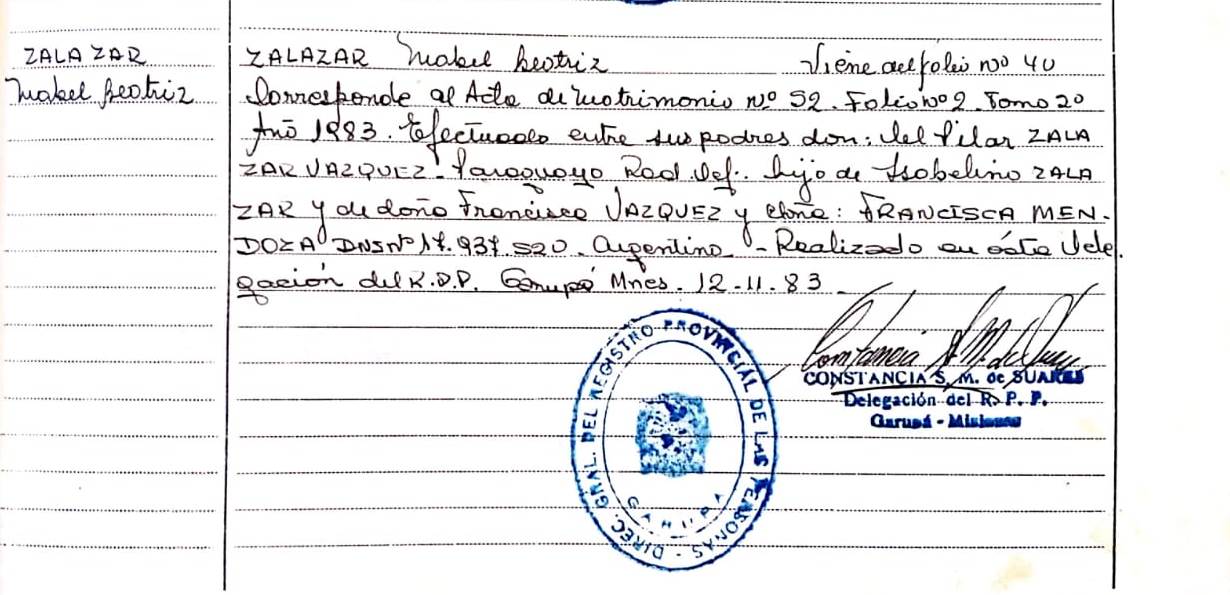 ZALAZAR
Mabel Beatriz
ZALAZAR Mabel Beatriz Viene del folio nº 40
Corresponde al Acta de Matrimonio Nº 52. Folio nº 2. Tomo 2º
Año 1983. Efectuado entre sus padres don: Del Pilar ZALA
ZAR VAZQUEZ - Paraguayo Rad. Def. hijo de Isabelino ZALA
ZAR y de doña Francisca VAZQUEZ y doña: FRANCISCA MEN-
DOZA DNI Nº 17.937.520. Argentina - Realizado en ésta Dele
gación del R.P.P. Garupá Mnes. 12-11-83
DIREC. GRAL. DEL REGISTRO PROVINCIAL DE LAS PERSONAS -
GARUPA
CONSTANCIA S. M. de SUARES
Delegación del R. P. P.
Garupá - Misiones